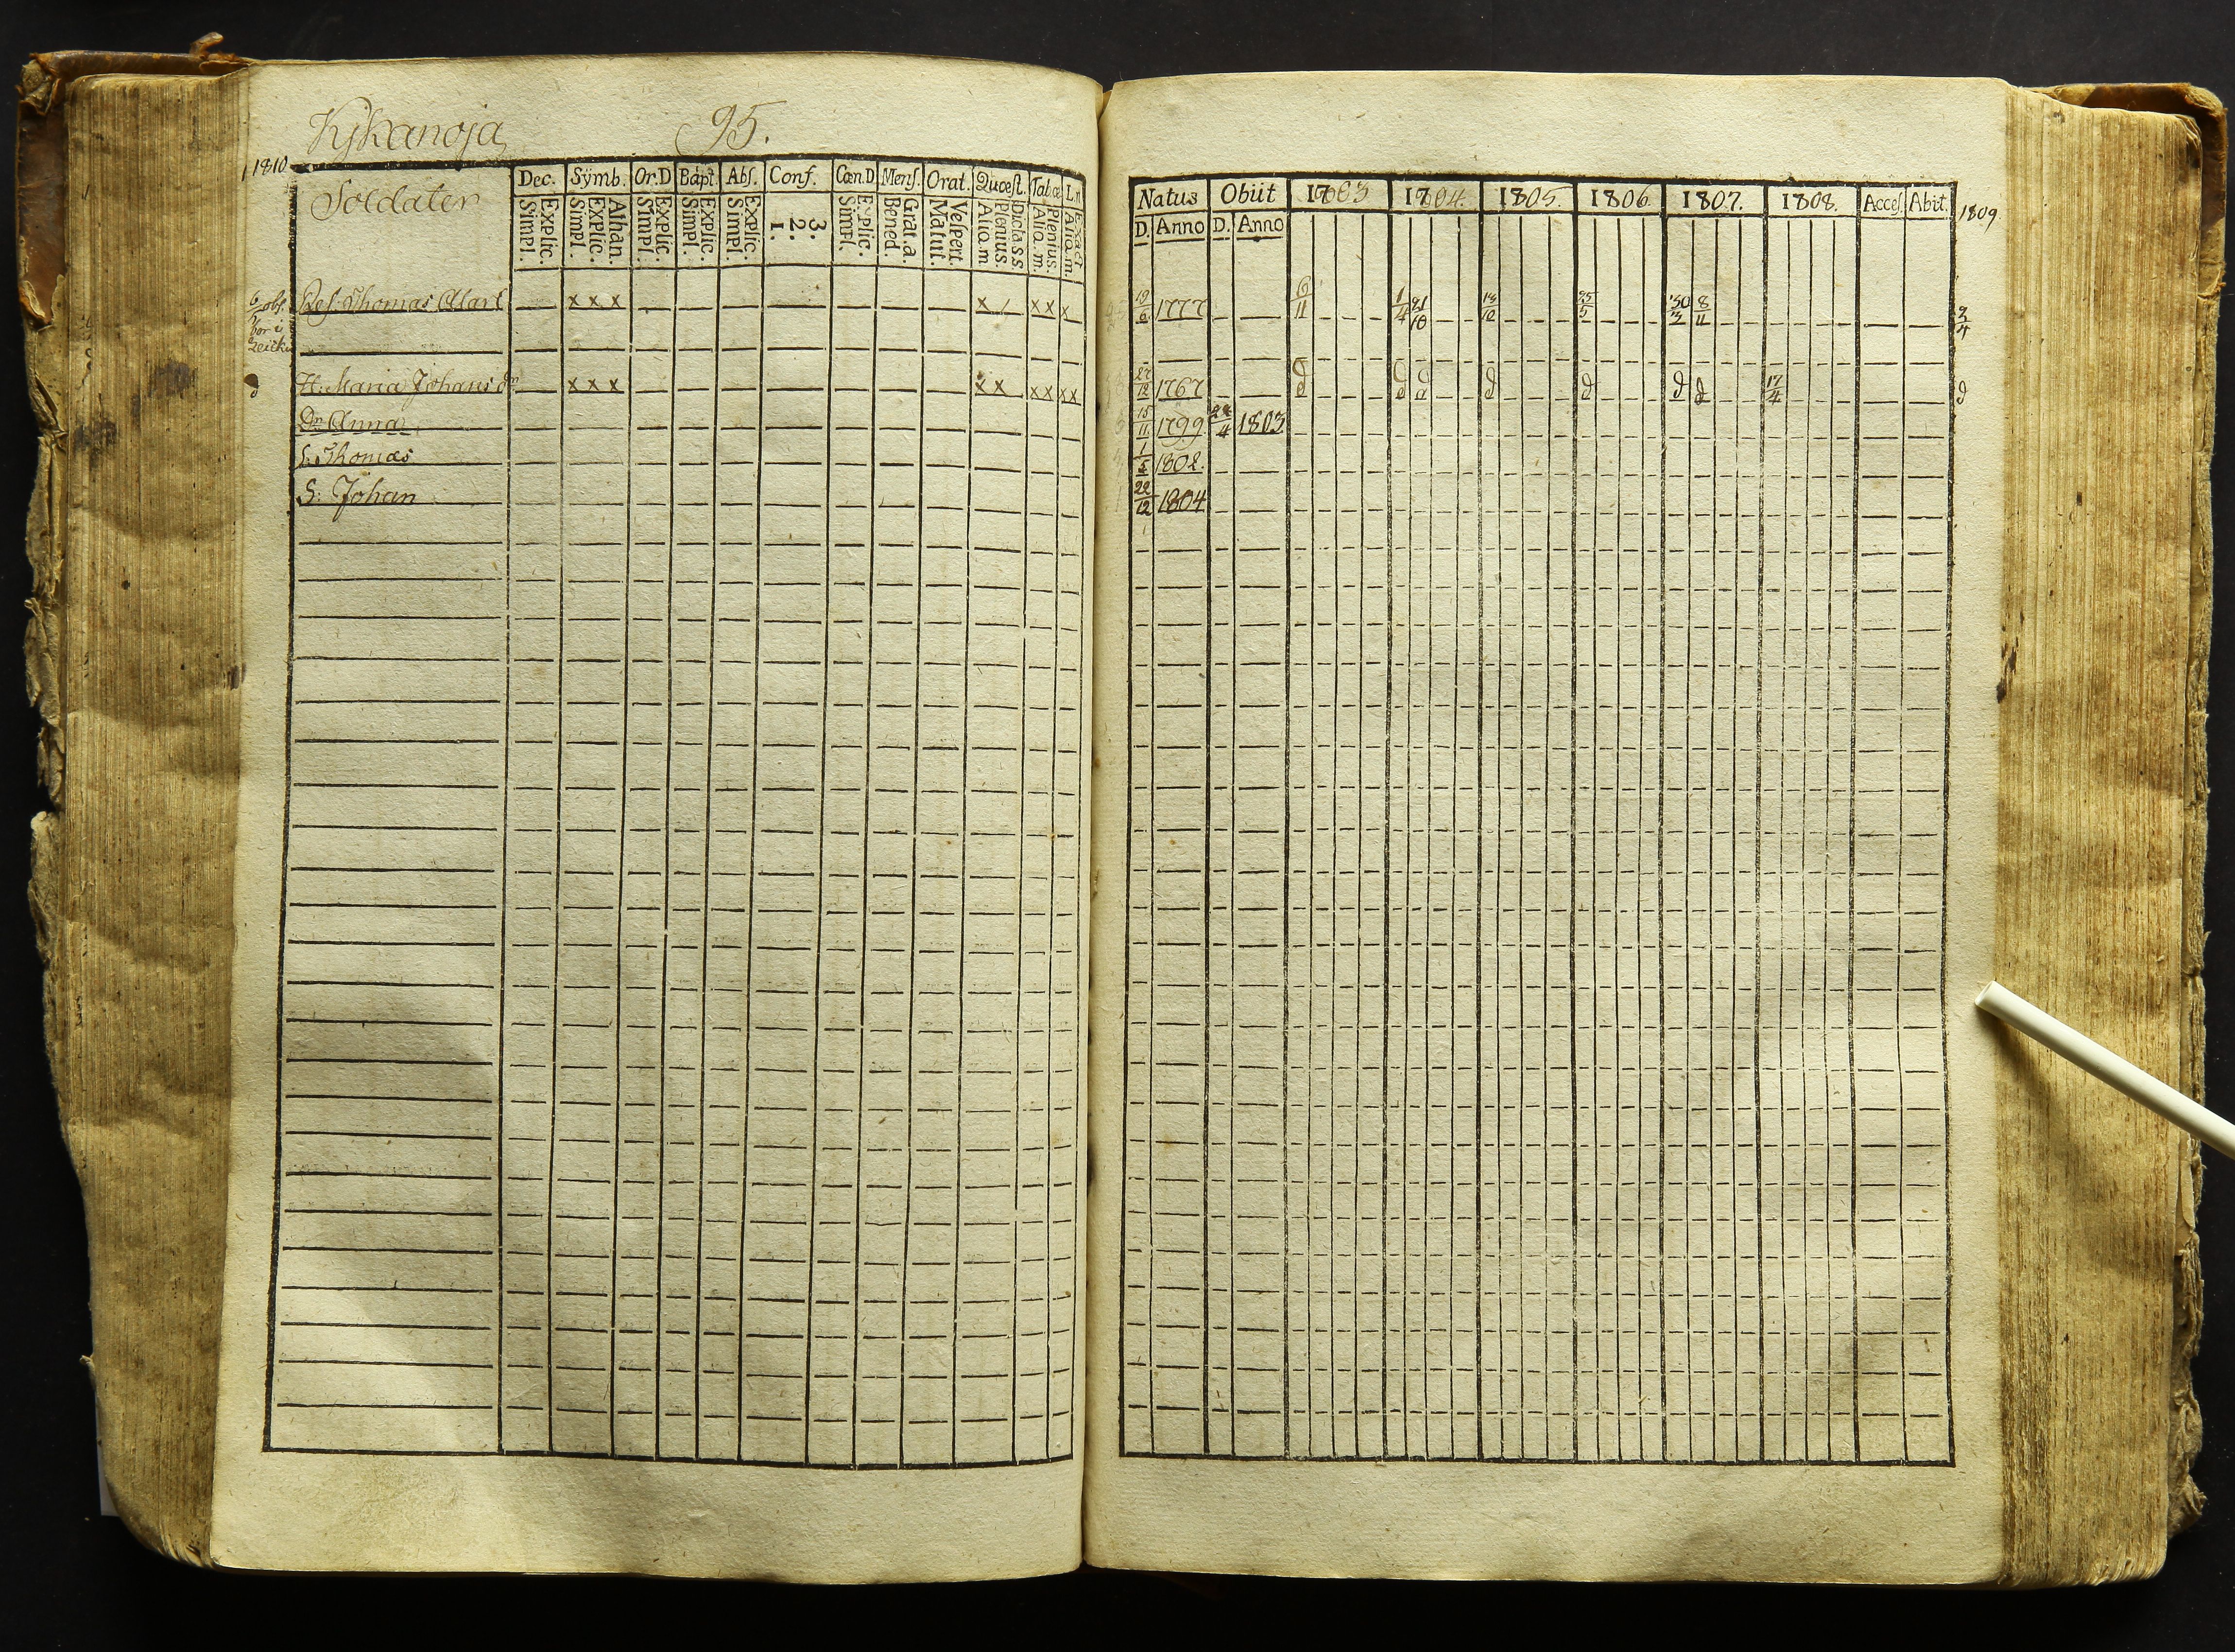 Kykanoja 95.
1810
Soldater
Dec. Sÿmb. Or.D Bapt. Abs. Conf. Cœn.D Mens. Orat. Quæst. Tabæ L.n
Explic. Simpl. Athan. Explic. Simpl. Explic. Simpl. Explic. Simpl. Explic. Simpl. 3. 2. 1. Explic. Simpl. Grat.a Bened. Vespert. Matut. Dicta SS Plenius. Aliq.m. Plenius. Aliq.m. Exact Aliq.m.
6 obs. Thomas x x x x x x x
bor i
H. Maria Johansdr x x x x x x x x x
Dr Anna
S. Thomas
S: Johan
Natus Obiit 1803 1804. 1805. 1806. 1807. 1808. Acces. Abit. 1809
D. Anno D. Anno
19/6 1777 6/11 1/4 21/10 13/10 25/5 30/3 8/11 2/4
27/12 1767 d d d d d d d 17/4 d
15/11 1799 24/4 1803
1/5 1802.
22/12 1804